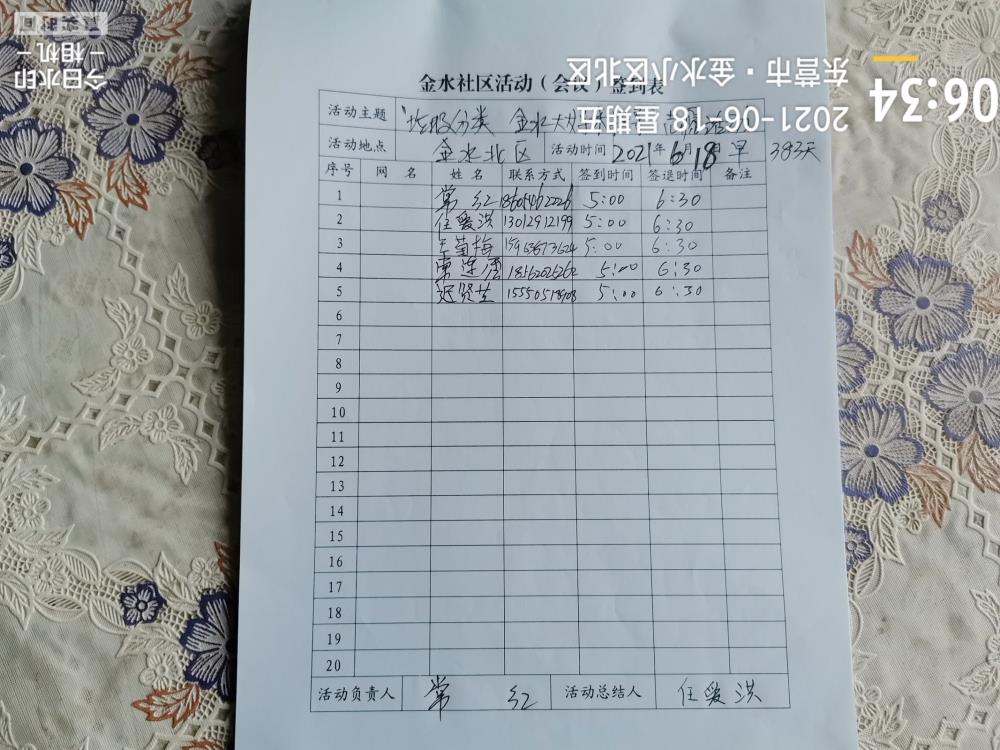 金水社区活动（会议）签到表
活动主题 "垃圾分类 金水
活动地点 金水北区 活动时间 2021年6月18日早 383天
序号 网 名 姓 名 联系方式 签到时间 签退时间 备注
1 常 红 5:00 6:30
2 任爱洪 13012912199 5:00 6:30
3 王菊梅 15963673624 5:00 6:30
4 5:00 6:30
5 迟贤芝 15550518908 5:00 6:30
6
7
8
9
10
11
12
13
14
15
16
17
18
19
20
活动负责人 常 红 活动总结人 任爱洪
06:34
2021-06-18 星期五
东营市·金水小区北区
今日水印
相机
真实时间